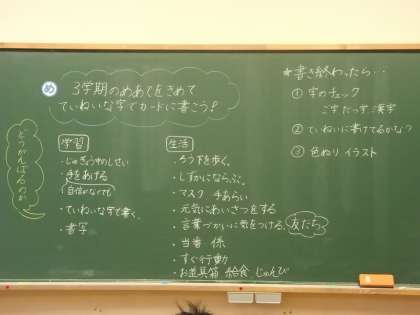 め
3学期のめあてをきめて
ていねいな字でカードに書こう!
どうがんばるのか
学習
・じゅぎょうのしせい
・手をあげる
自信がなくても
・ていねいな字で書く。
・書写
生活
・ろう下を歩く。
・しずかにならぶ。
・マスク 手あらい
・元気にあいさつをする
・言葉づかいに気をつける。
友だち
・当番 係
・すぐ行動
・お道具箱 給食 じゅんび
★書き終わったら…
① 字のチェック
ごじ だつじ 漢字
② ていねいに書けてるかな?
③ 色ぬり イラスト